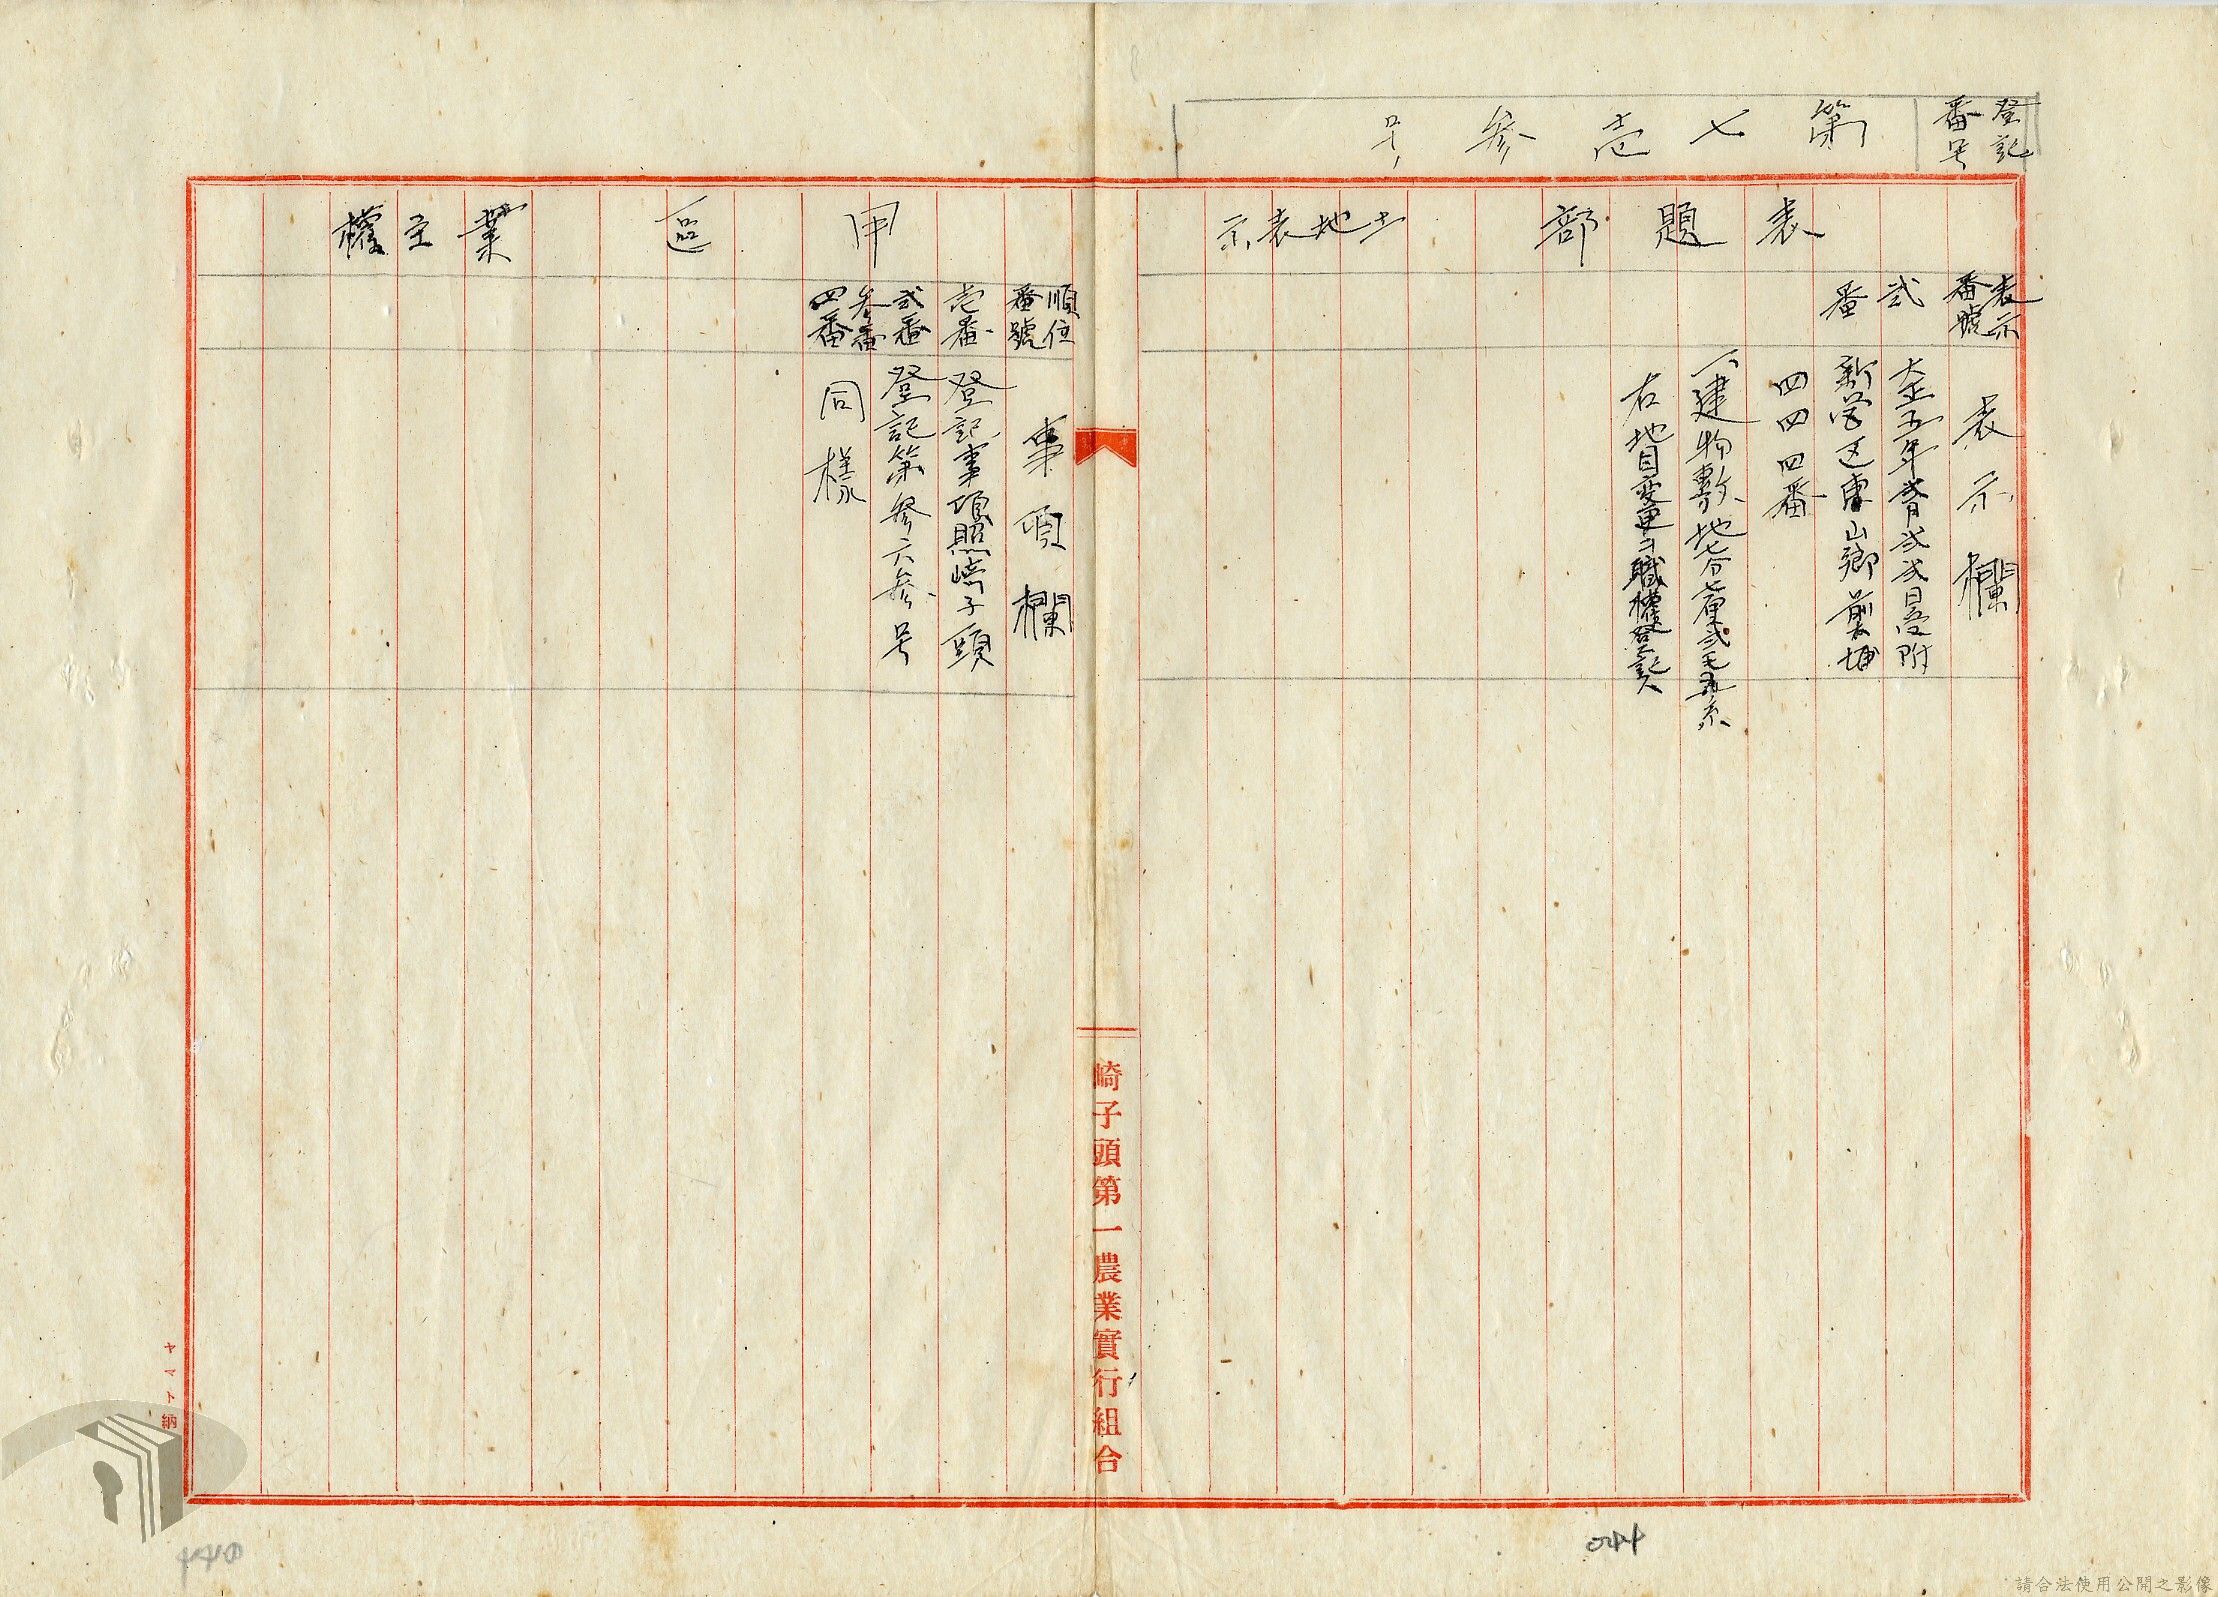 登記
番号
第七壱參号
表題部
土地表示
表示
番號
表示欄
弍
番
大正五年 弍弍日受附
新営区唐山鄉 埔
四四四番
一、建物敷地七分七厘弍毛五糸
右地目変更ニ職權登記ス
甲區
業主權
順位
番號
事項欄
壱番
登記事項照崎子頭
弍番
登記第參六參号
參番
四番
同様
崎子頭第一農業實行組合
ヤマト納
044
請合法使用公開之影像